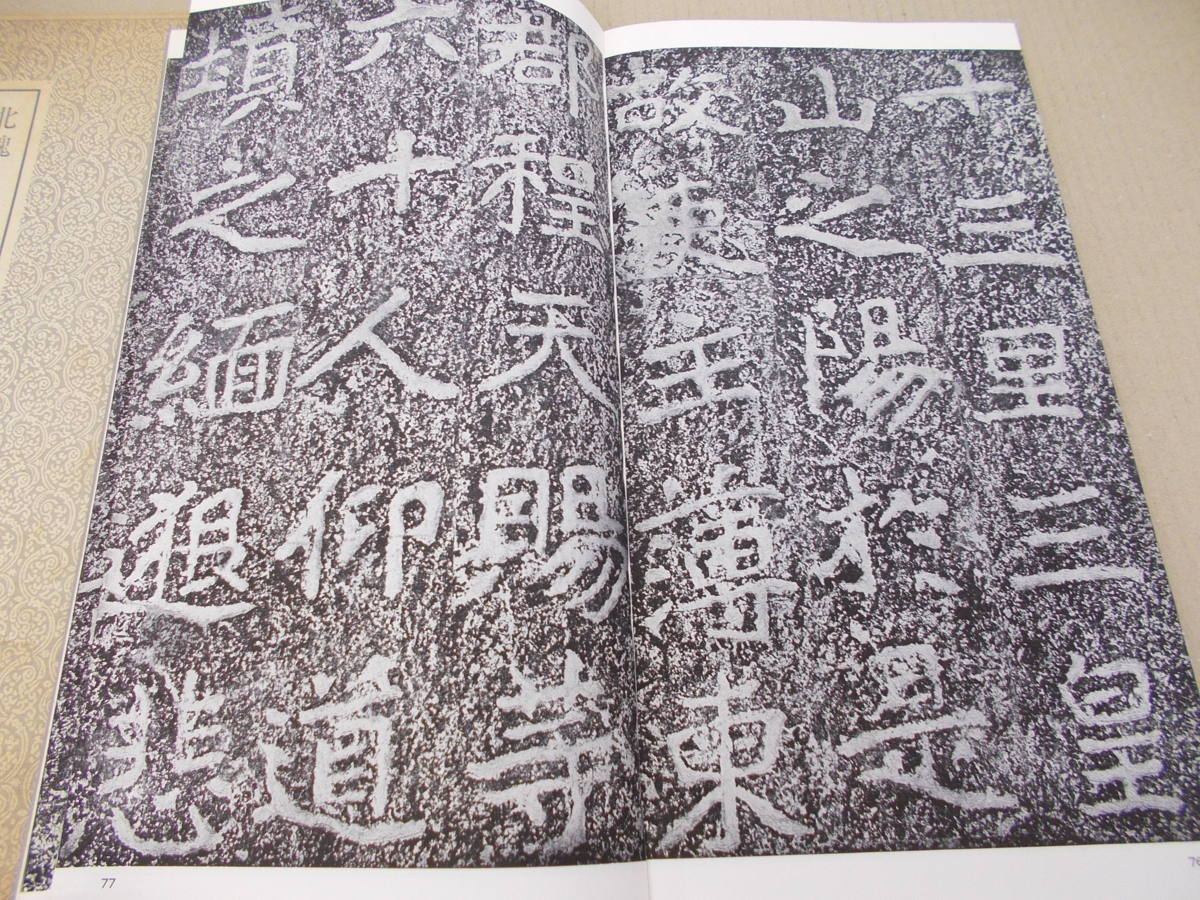 十三里三皇
山之陽於是
故吏主薄東
郡程天賜等
六十人仰道
墳之緬邈悲
77
76
北魏